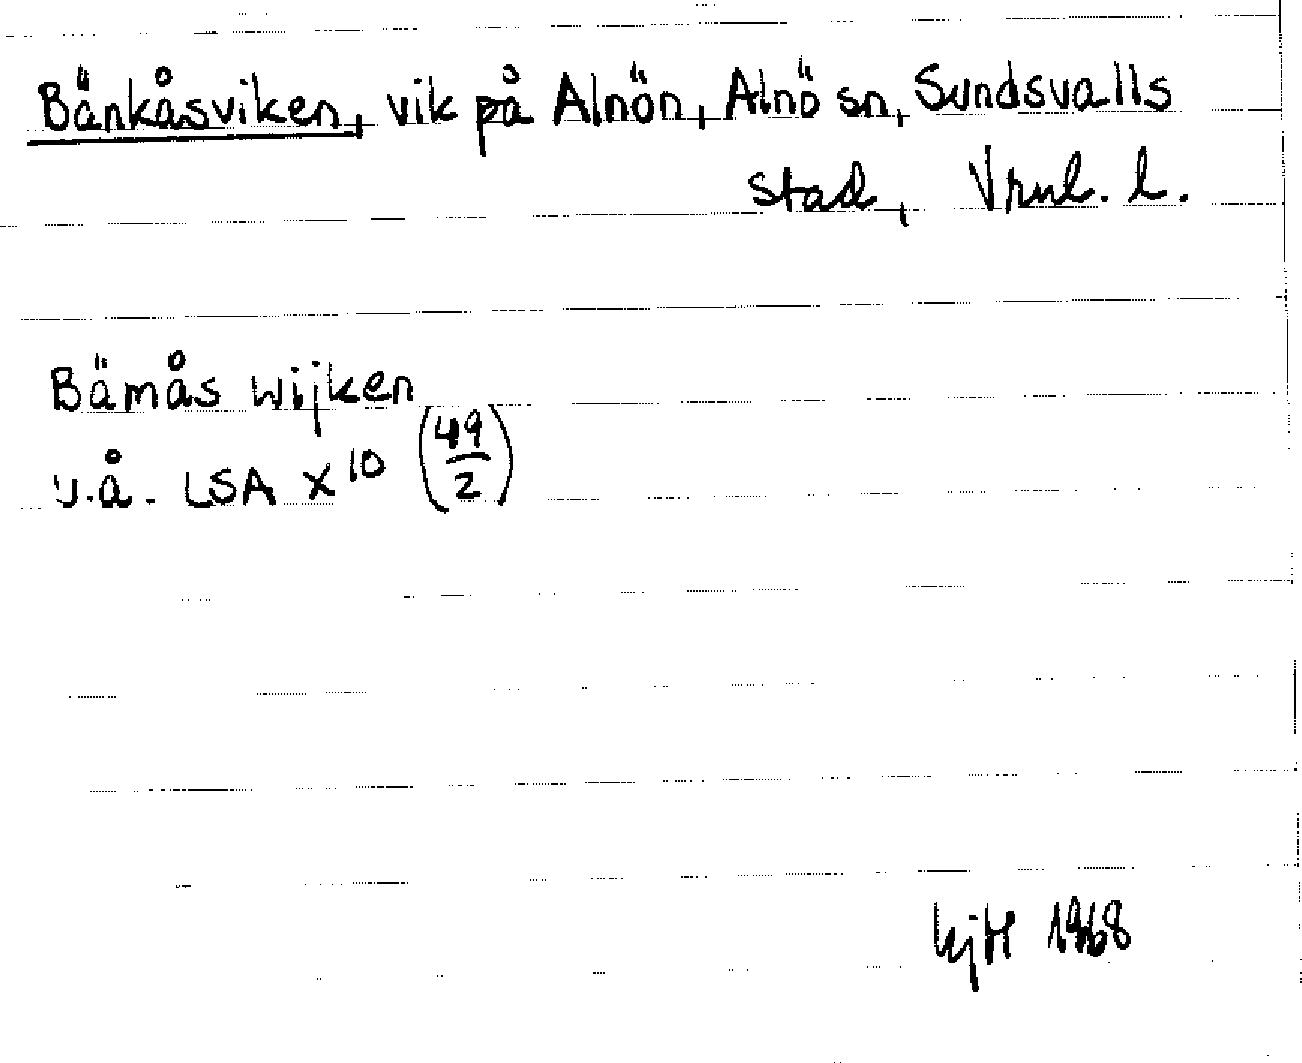 Bänkåsviken, vik på Alnön, Alnö sn, Sundsvalls
stad, Vrnl. l.
Bämås wijken
u.å. LSA X¹⁰ (49/2)
1968